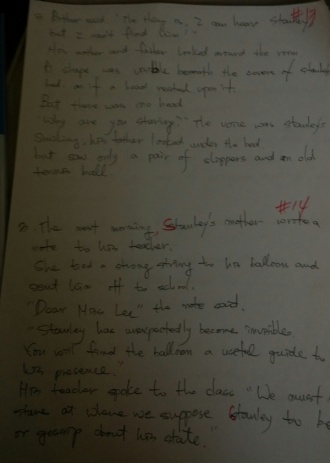 #13
7. Arthur said. "The thing is, I can hear Stanley
but I can't find him!"
His mother and father looked around the room
A shape was visible beneath the covers of Stanley's
bed as if a head rested upon it.
But there was no head
"Why are you staring?" The voice was Stanley's
Smiling, his father looked under the bed
but saw only a pair of slippers and an old
tennis ball.
#14
8. The next morning, Stanley's mother wrote a
note to his teacher.
She tied a strong string to his balloon and
sent him off to school.
"Dear Miss Lee" the note said.
"Stanley has unexpectedly become invisible.
You will find the balloon a useful guide to
his presence."
His teacher spoke to the class "We must
stare at where we suppose Stanley to be
or gossip about his state."